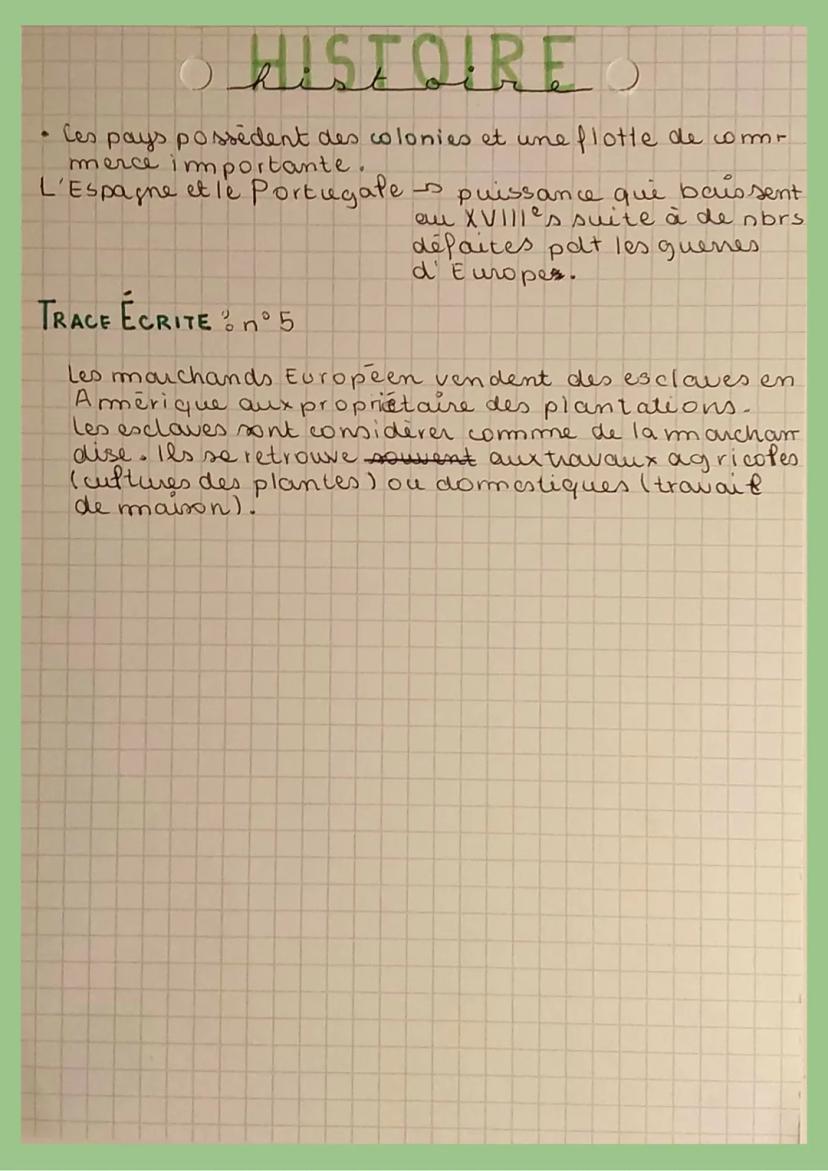 HISTOIRE
histoire
• Ces pays possèdent des colonies et une flotte de com-
merce importante.
L'Espagne et le Portugale → puissance qui baissent
au XVIIIe s suite à de nbrs
défaites pdt les guerres
d'Europes.
TRACE ÉCRITE : n° 5
Les marchands Européen vendent des esclaves en
Amérique aux propriétaire des plantations.
Les esclaves sont considérer comme de la marchan
dise. Ils se retrouve souvent aux travaux agricoles
(cultures des plantes) ou domestiques (travail
de maison).